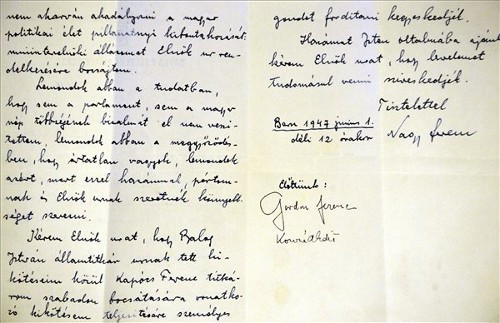 nem akarván akadályozni a magyar
politikai élet pillanatnyi kibontakozását,
miniszterelnöki állásomat Elnök úr ren-
delkezésére bocsájtom.
Lemondok abban a tudatban,
hogy sem a parlament, sem a magyar
nép többségének bizalmát el nem veszi-
tettem, lemondok abban a meggyőződés-
ben, hogy ártatlan vagyok, lemondok
azért, mert ezzel hazámnak, pártom-
nak és Elnök urnak szeretnék könnyebb-
séget szerezni.
Kérem Elnök urat, hogy Balogh
István államtitkár urnak tett ki-
kötéseim körül Kapócs Ferenc titká-
rom szabadon bocsátására vonatko-
zó kikötésem teljesitésére személyes
gondot forditani kegyeskedjék.
Hazámat Isten oltalmába ajánlva
kérem Elnök urat, hogy levelemet
tudomásul venni sziveskedjék.
Tisztelettel
Bern 1947 junius 1.
déli 12 órakor Nagy Ferenc
Előttünk:
Gordon Ferenc